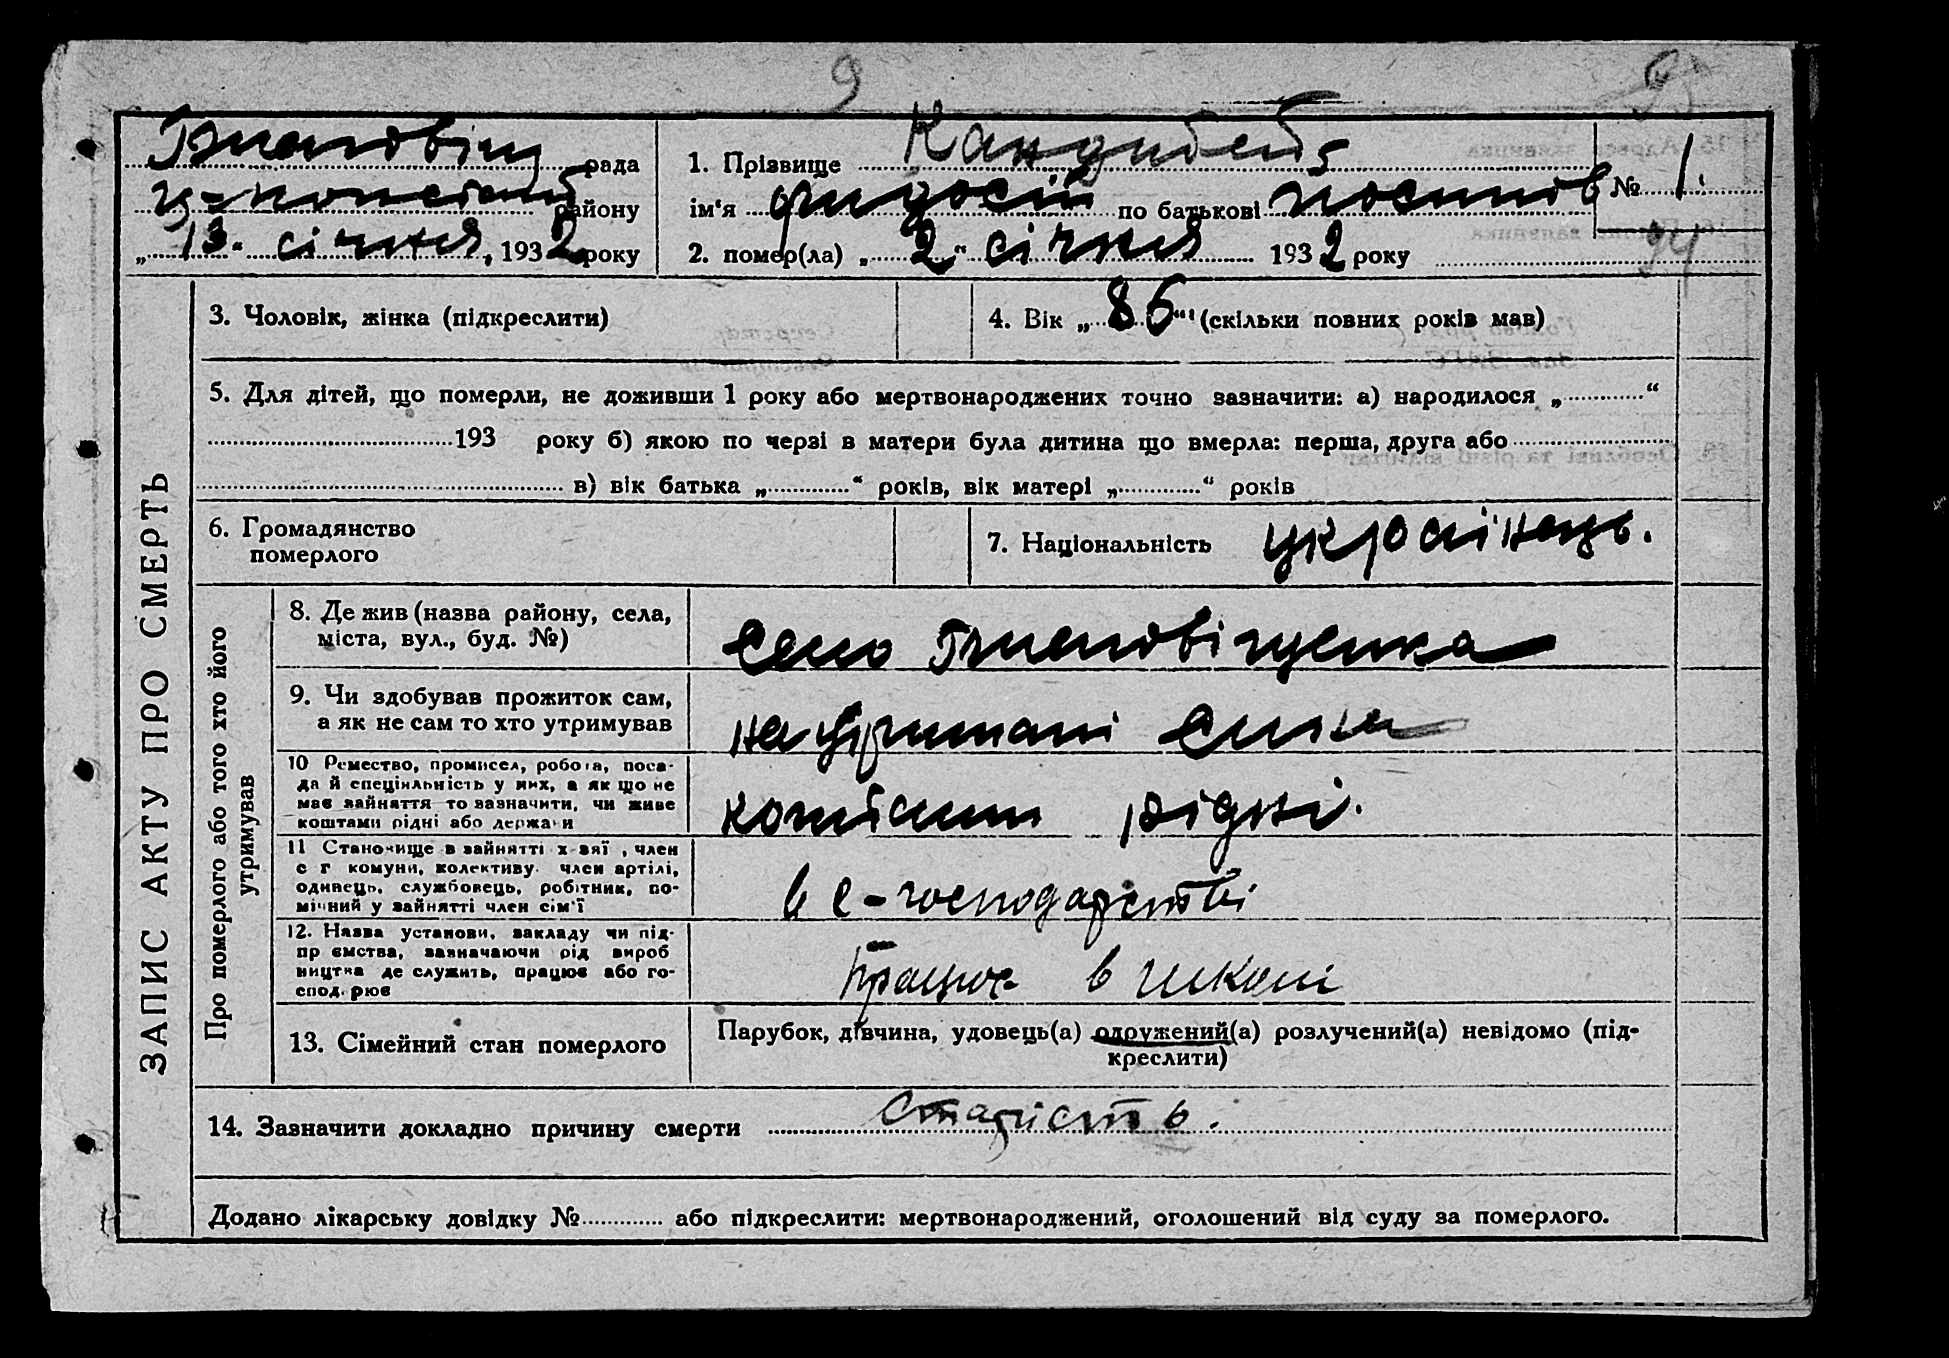 9
рада
району
„ 13. січня, 1932 року
1. Прізвище
ім'я по батькові
№ 1.
2. помер(ла) „ 2 “ січня 1932 року
94
ЗАПИС АКТУ ПРО СМЕРТЬ
3. Чоловік, жінка (підкреслити)
4. Вік „ 86 “ (скільки повних років мав)
5. Для дітей, що померли, не доживши 1 року або мертвонароджених точно зазначити: а) народилося „ “
193 року б) якою по черзі в матери була дитина що вмерла: перша, друга або
в) вік батька „ “ років, вік матері „ “ років
6. Громадянство
померлого
7. Національність українець.
Про померлого або того хто його
утримував
8. Де жив (назва району, села,
міста, вул., буд. №)
село
9. Чи здобував прожиток сам,
а як не сам то хто утримував
на утримані сина
10 Ремество, промисел, робота, поса-
да й спеціяльність у них, а як що не
має зайняття то зазначити, чи живе
коштами рідні або держави
коштами рідні.
11 Становище в зайнятті х-вяї , член
с г комуни, колективу член артілі,
одинець, службовець, робітник, по-
мічний у зайнятті член сім'ї
в с-господарстві
12. Назва установи, закладу чи під-
пр ємства, зазначаючи рід вироб
ництва де служить, працює або го-
спод рює
Працює в школі
13. Сімейний стан померлого
Парубок, дівчина, удовець(а) одружений(а) розлучений(а) невідомо (під-
креслити)
14. Зазначити докладно причину смерти старість.
Додано лікарську довідку № або підкреслити: мертвонароджений, оголошений від суду за померлого.